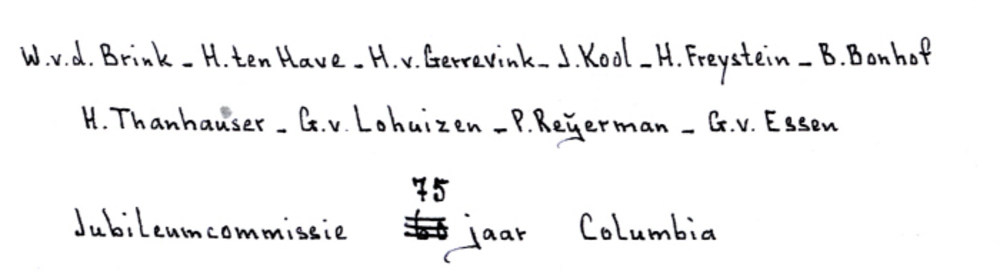 W.v.d. Brink - H. ten Have - H.v. Gerrevink - J. Kool - H. Freystein - B. Bonhof
H. Thanhauser - G.v. Lohuizen - P. Reÿerman - G.v. Essen
75
Jubileumcommissie jaar Columbia